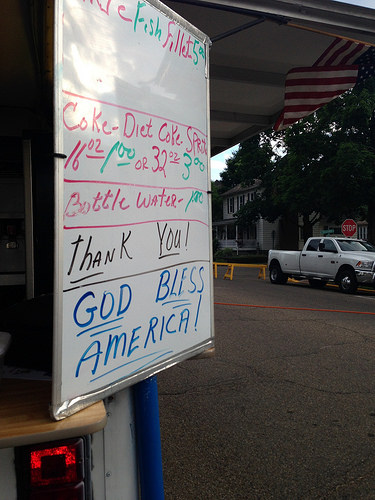 Fish Fillet 5.00
Coke-Diet Coke Sprite
16oz 1.00 or 32oz 3.00
Bottle Water- 1.00
THANK YOU!
GOD BLESS
AMERICA!
STOP